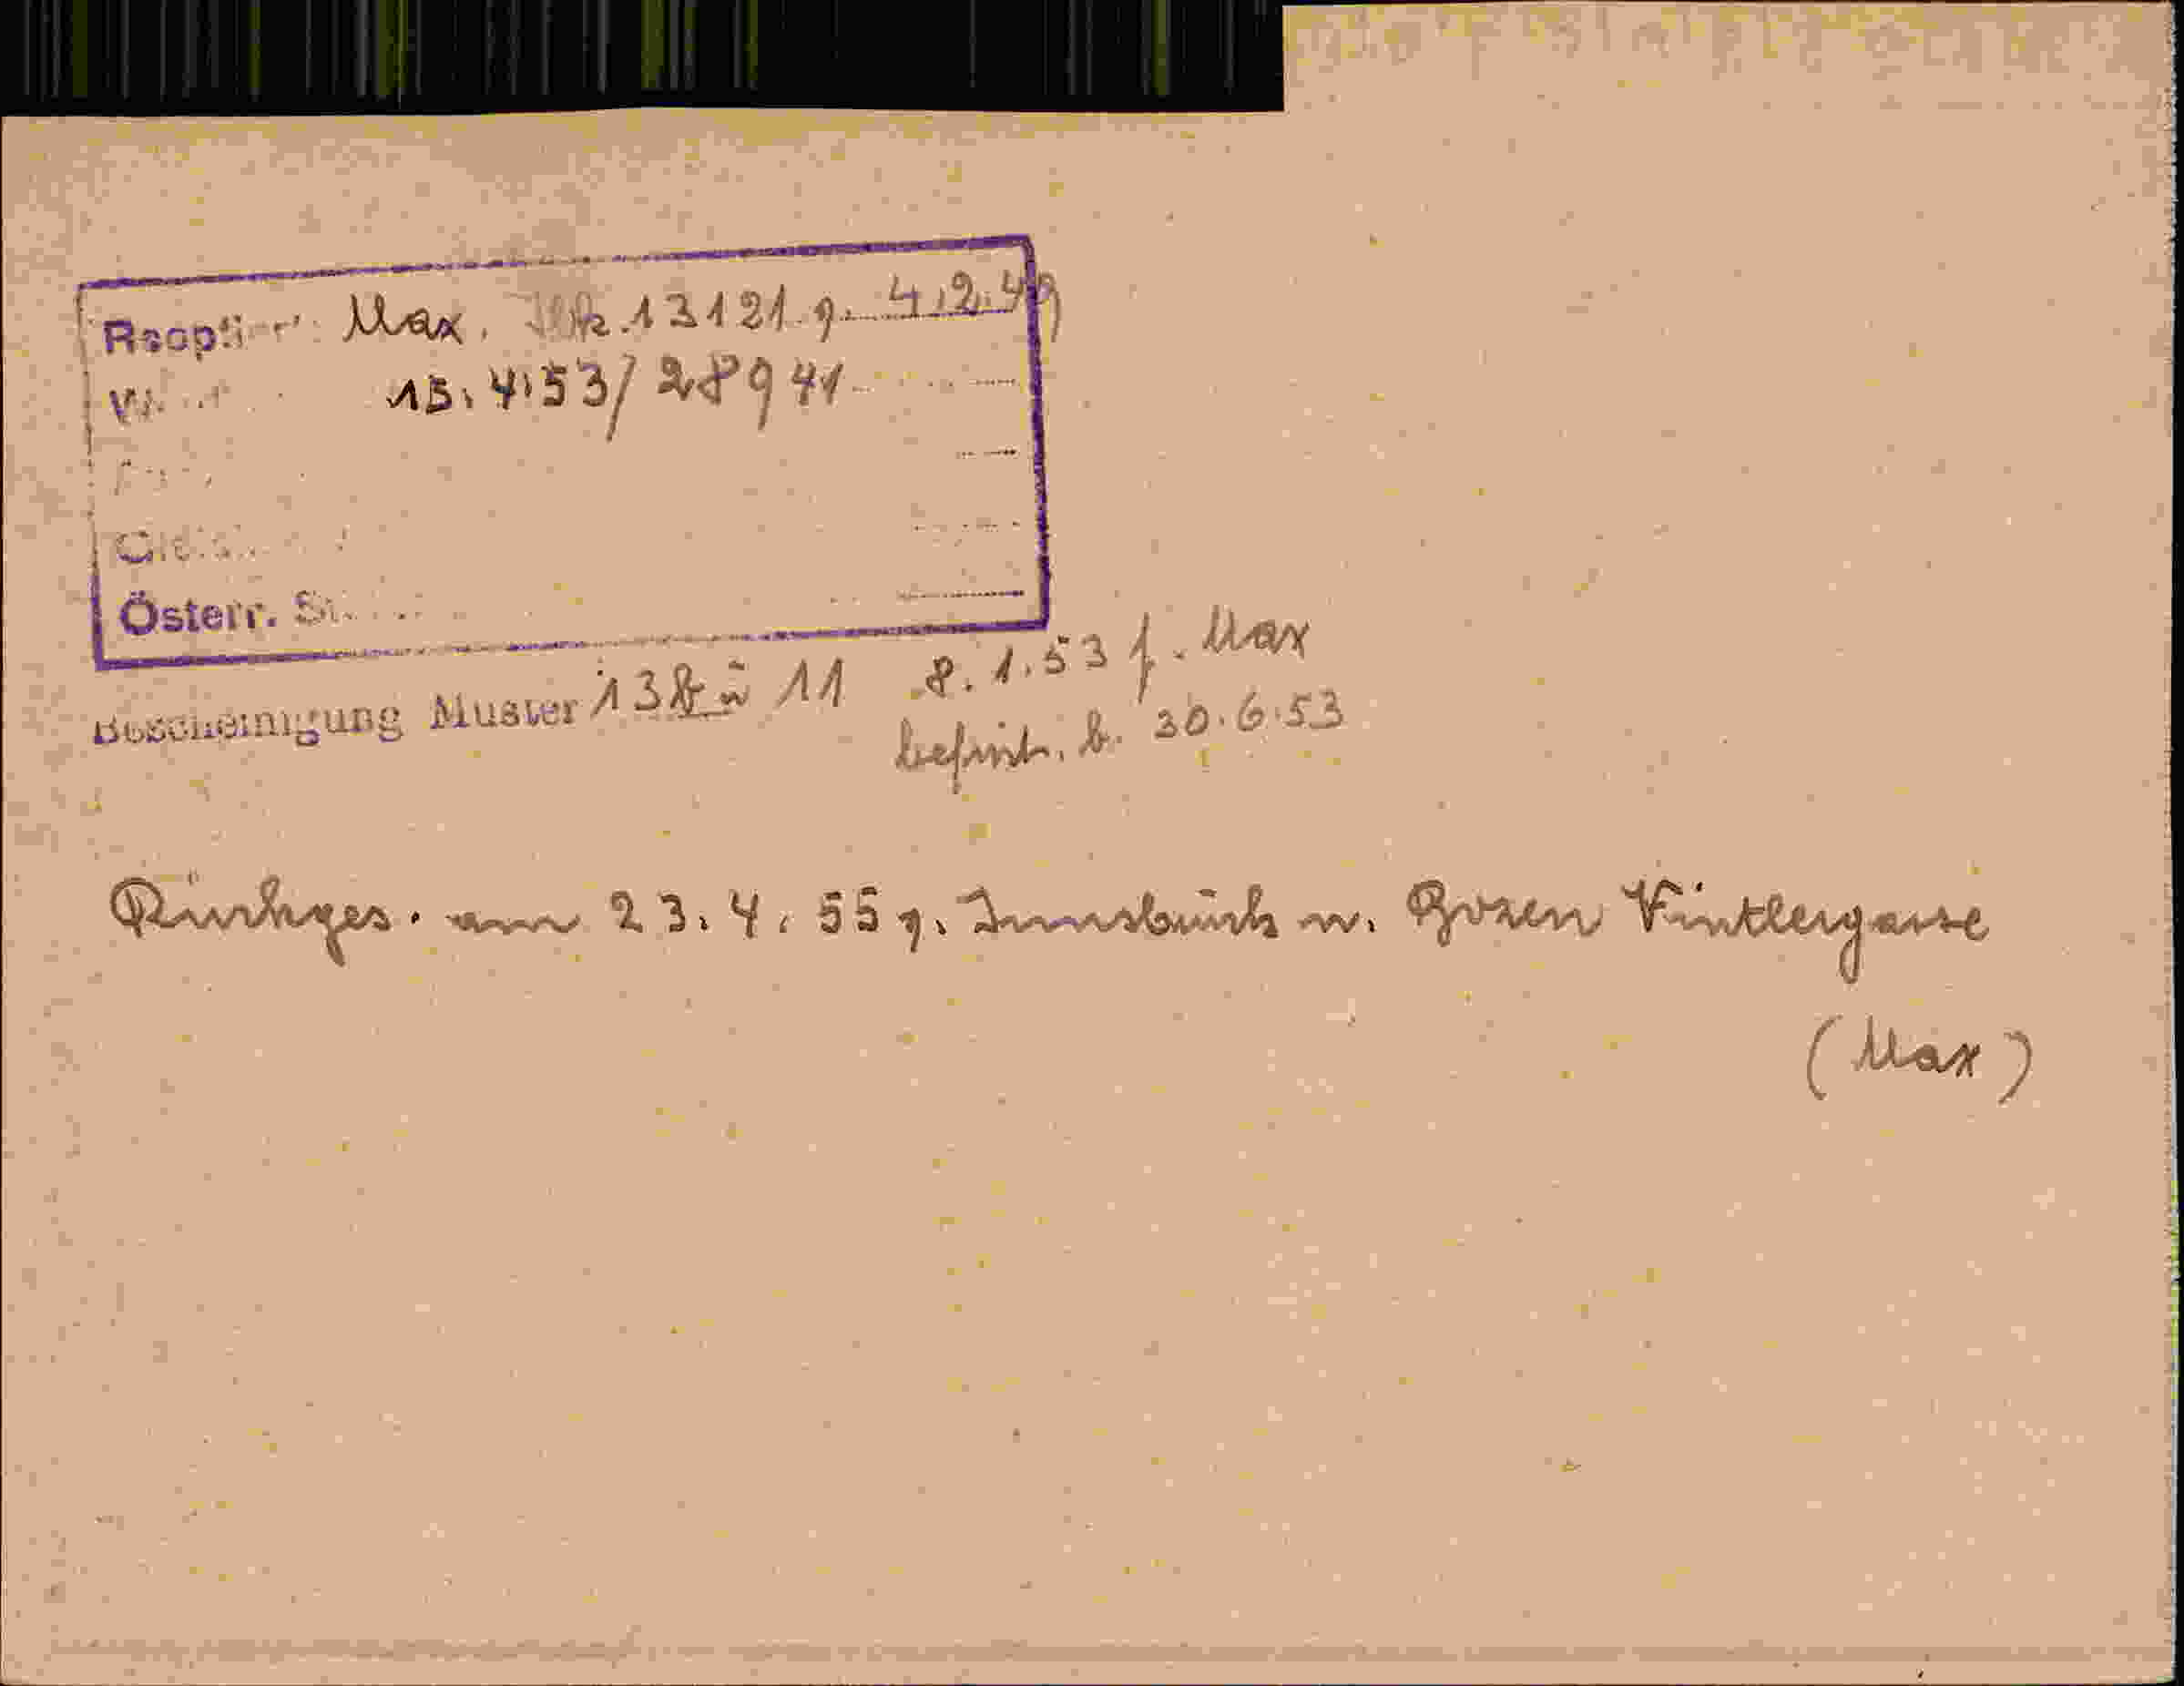 Max. 13121 g. 4.2.49
15.4.53/28941
Österr.
Bescheinigung Muster 13 11 8.1.53 f. Max
befrist. b. 30.6.53
Rückges. am 23.4.55 v. Innsbruck n. Bozen Vintlergasse
(Max)